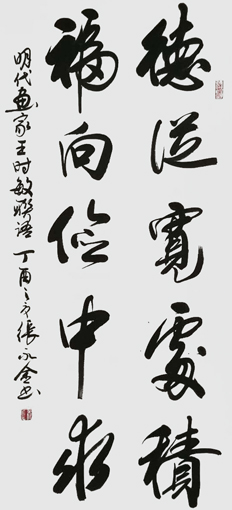 德從寬處積
福向俭中求
明代画家王时敏联语 丁酉之 张永金书